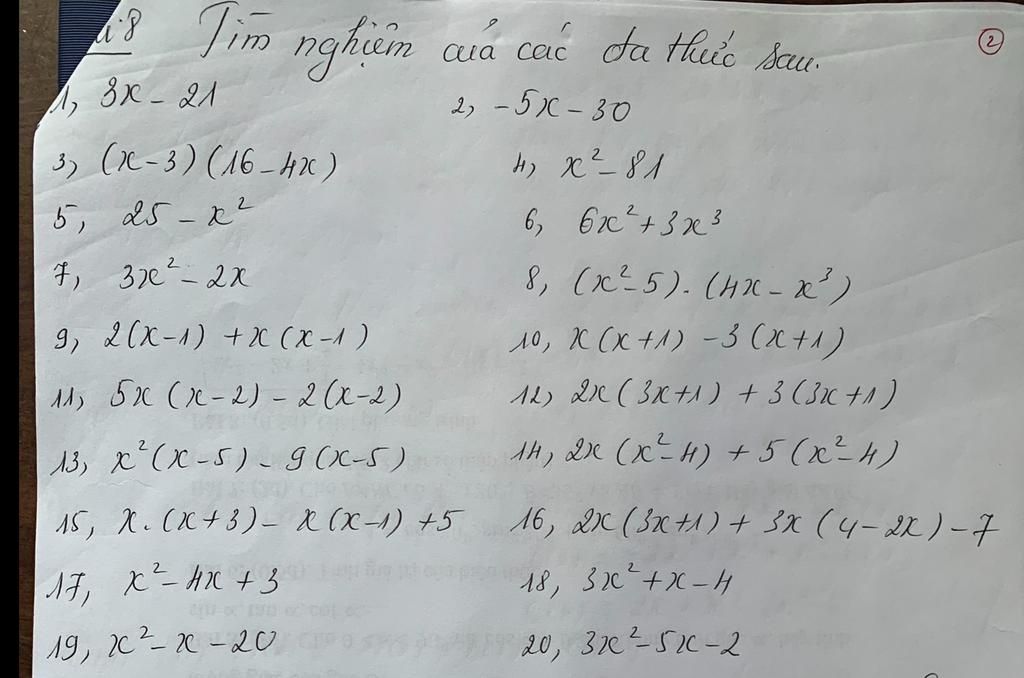 i 8 Tìm nghiệm của các đa thức sau. 2
1, 3x - 21 2, -5x - 30
3, (x-3)(16-4x) 4, x² - 81
5, 25 - x² 6, 6x² + 3x³
7, 3x² - 2x 8, (x²-5).(4x - x³)
9, 2(x-1) + x(x-1) 10, x(x+1) - 3(x+1)
11, 5x(x-2) - 2(x-2) 12, 2x(3x+1) + 3(3x+1)
13, x²(x-5) - 9(x-5) 14, 2x(x²-4) + 5(x²-4)
15, x.(x+3) - x(x-1) + 5 16, 2x(3x+1) + 3x(4-2x) - 7
17, x² - 4x + 3 18, 3x² + x - 4
19, x² - x - 20 20, 3x² - 5x - 2